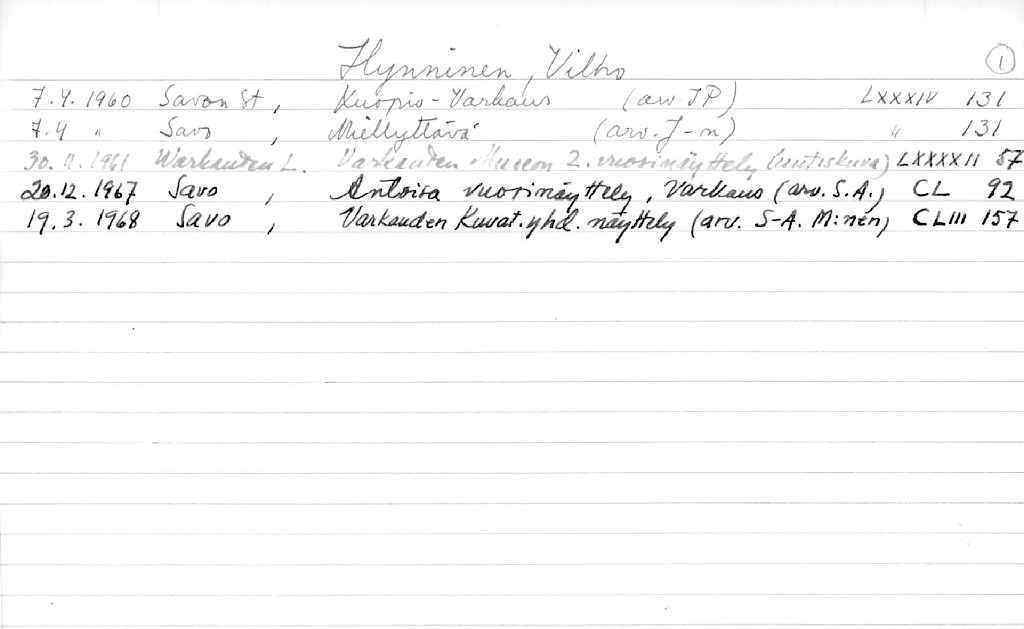 Hynninen, Vilho 1
7.4. 1960 Savon St, Kuopio - Varkaus (arv. JP) LXXXIV 131
7.4 " Savo , Miellyttävä (arv. J-n) " 131
30.11.1961 Warkauden L. Varkauden Museon 2. vuosinäyttely (uutiskuva) LXXXXII 57
20.12.1967 Savo , Antoisa vuosinäyttely, Varkaus (arv. S.A.) CL 92
19.3.1968 Savo , Varkauden Kuvat.yhd. näyttely (arv. S-A. M:nen) CLIII 157